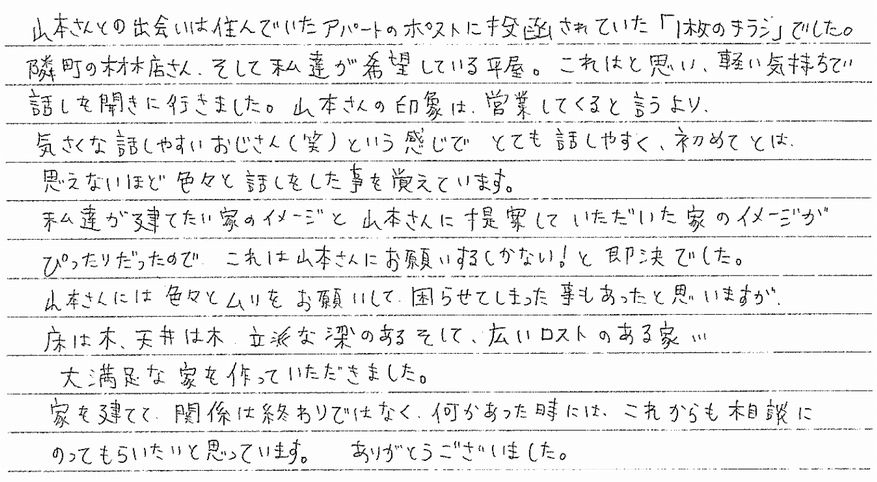 山本さんとの出会いは住んでいたアパートのポストに投函されていた「1枚のチラシ」でした。
隣町の材木店さん、そして私達が希望している平屋。これはと思い、軽い気持ちで
話しを聞きに行きました。山本さんの印象は、営業してくると言うより、
気さくな話しやすいおじさん(笑)という感じで とても話しやすく、初めてとは、
思えないほど色々と話しをした事を覚えています。
私達が建てたい家のイメージと 山本さんに提案して いただいた家のイメージが
ぴったりだったので、これは山本さんにお願いするしかない!と即決でした。
山本さんには色々とムリをお願いして、困らせてしまった事もあったと思いますが、
床は木、天井は木、立派な梁のあるそして、広いロストのある家…
大満足な家を作っていただきました。
家を建てて、関係は終わりではなく、何かあった時には、これからも相談に
のってもらいたいと思っています。 ありがとうございました。